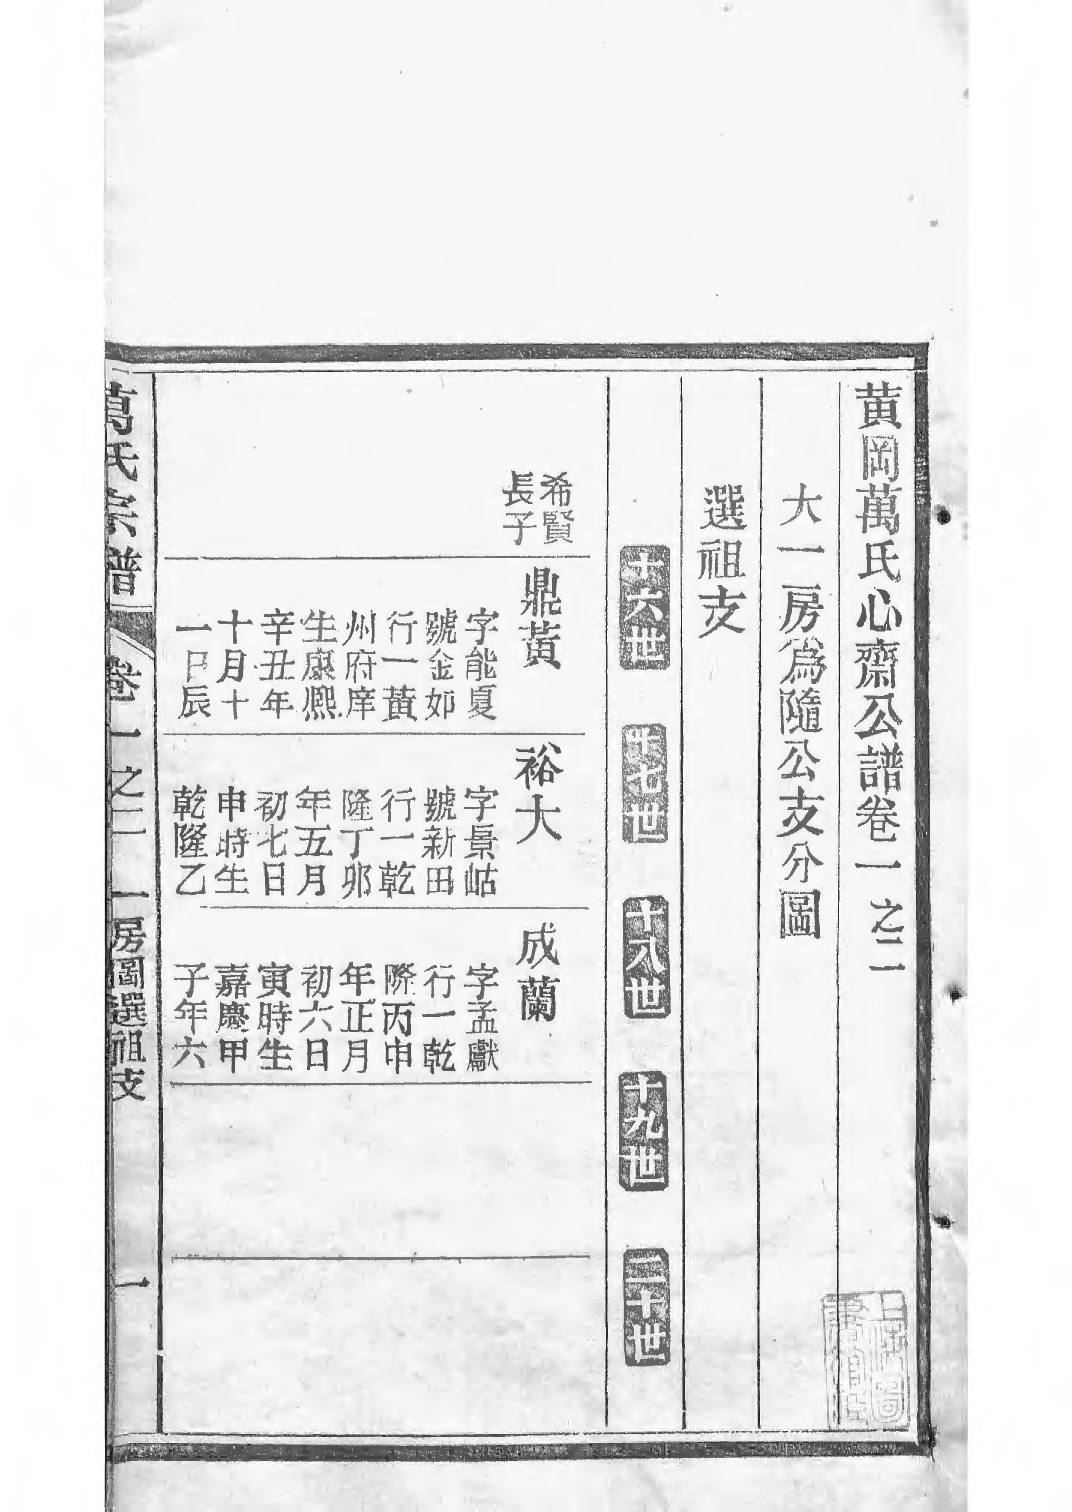 黄岡萬氏心齋公譜卷一之二
大一房爲隨公支分圖
選祖支
十六世
十七世
十八世
十九世
二十世
希賢
長子
鼎黃
字能夏
號金如
行一黃
州府庠
生康熙
辛丑年
十月十
一日辰
裕大
字景岵
號新田
行一乾
隆丁卯
年五月
初七日
申時生
乾隆乙
成蘭
字孟獻
行一乾
隆丙申
年正月
初六日
寅時生
嘉慶甲
子年六
萬氏宗譜
卷一之二
一房圖選祖支
一